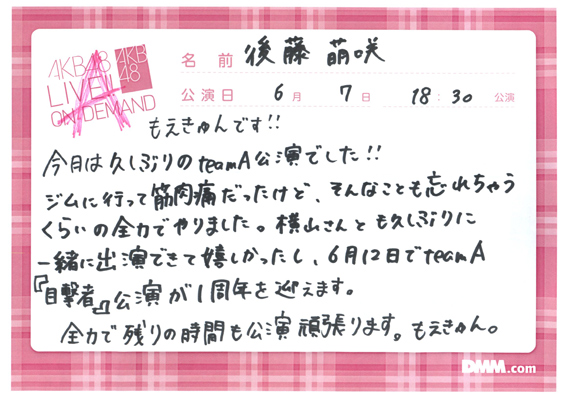 AKB48
LIVE!!
ON DEMAND
AKB
48
名前 後藤 萌咲
公演日 6月 7日 18:30 公演
もえきゅんです!!
今月は久しぶりのteamA公演でした!!
ジムに行って筋肉痛だったけど、そんなことも忘れちゃう
くらいの全力でやりました。横山さんとも久しぶりに
一緒に出演できて嬉しかったし、6月12日でteamA
『目撃者』公演が1周年を迎えます。
全力で残りの時間も公演頑張ります。もえきゅん。
DMM.com